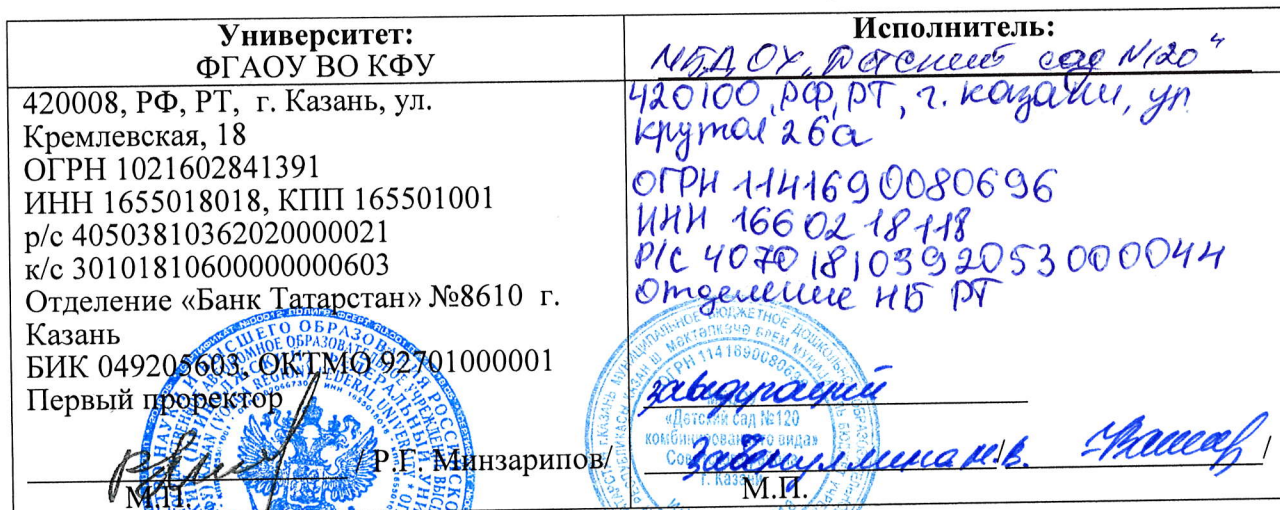 Университет:
ФГАОУ ВО КФУ
420008, РФ, РТ, г. Казань, ул.
Кремлевская, 18
ОГРН 1021602841391
ИНН 1655018018, КПП 165501001
р/с 40503810362020000021
к/с 30101810600000000603
Отделение «Банк Татарстан» №8610 г.
Казань
БИК 049205603, ОКТМО 92701000001
Первый проректор
/ Р.Г. Минзарипов/
М.П.
Исполнитель:
МБДОУ „Детский сад №120"
420100, РФ, РТ, г. Казань, ул
Крутая 26а
ОГРН 1141690080696
ИНН 1660218118
Р/С 40701810392053000044
Отделение НБ РТ
заведующий
«Детский сад №120
комбинированного вида»
г. Казани
Н.В. /
М.П.